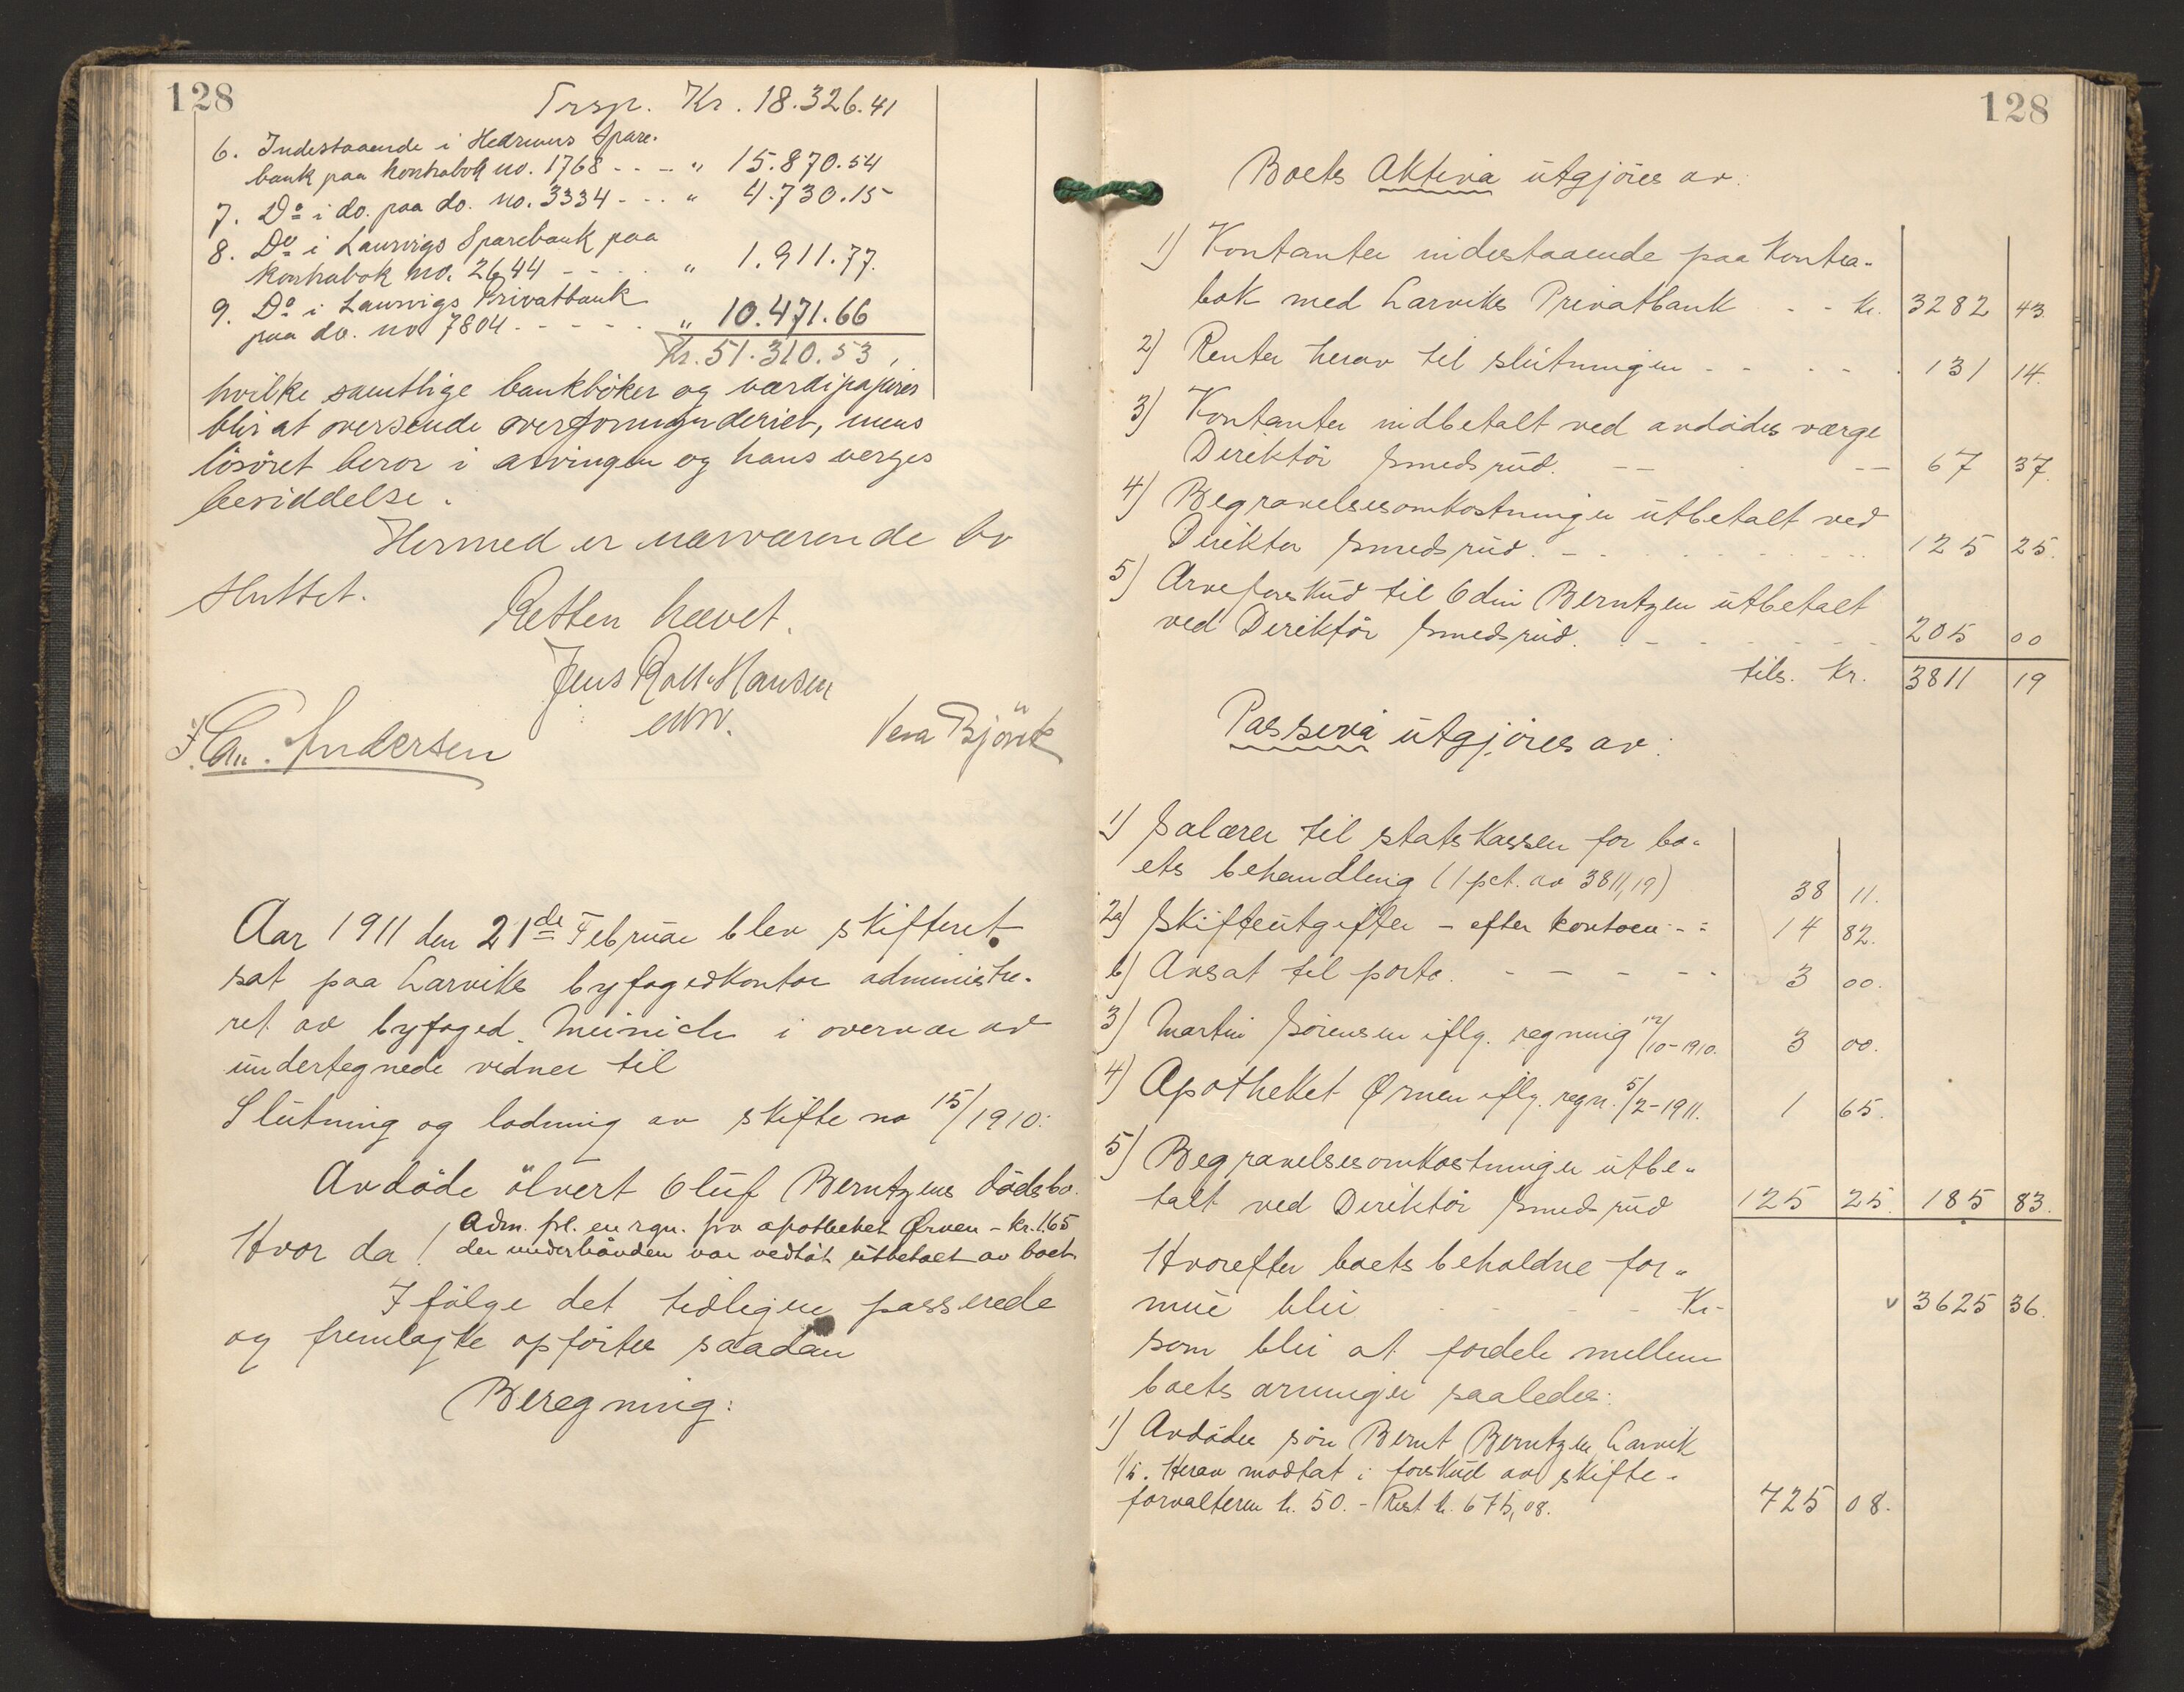 128
Trsp. Kr. 18.326.41
6. Indestaaende i Hedrums Spare-
bank paa kontrabok no. 1768 - - - " 15.870.54
7. Do i do. paa do. no. 3334 - - - " 4.730.15
8. Do i Laurvigs Sparebank paa
kontrabok no. 2644 - - - - " 1.911.77.
9. Do i Laurvigs Privatbank
paa do. no 7804 - - - - - " 10.471.66
Kr. 51.310.53,
hvilke samtlige bankböker og værdipapirer
blir at oversende overformynderiet, mens
lösöret beror i arvingen og hans verges
besiddelse.
Hermed er nærværende bo
sluttet.
Retten hævet.
Jens Roll-Hansen
Vera Björk
F. Chr. Andersen
Aar 1911 den 21de Februar blev skifteret
sat paa Larviks byfogedkontor administre-
ret av byfoged Meinich i overvær av
undertegnede vidner til
Slutning og lodning av skifte no 15/1910:
Avdöde ölvert Oluf Berntzens dödsbo.
Hvor da! Adm. fl. en rgn. fra apotheket Ørnen - kr. 1.65
der underhånden var vedtat utbetalt av boet.
Ifölge det tidligere passerede
og fremlagte opförtes saadan
Beregning:
128
Boets Aktiva utgjöres av:
1) Kontanter indestaaende paa Kontra-
bok med Larviks Privatbank - - kr. 3282 43.
2) Renter herav til slutningen - - - - 131 14.
3) Kontanter indbetalt ved avdödes værge
Direktör Smedsrud. - - - 67 37.
4) Begravelsesomkostninger utbetalt ved
Direktör Smedsrud. - - - 125 25.
5) Arveforskud til Odin Berntzen utbetalt
ved Direktör Smedsrud. - - - 205 00
tils. kr. 3811 19
Passiva utgjöres av:
1) Salærer til statskassen for bo-
ets behandling (1 pct. av 3811,19) 38 11.
2a) Skifteutgifter - efter kontoen - - 14 82.
b) Avsat til porto. - - - - - 3 00.
3) Martin Sörensen iflg. regning 12/10-1910. 3 00.
4) Apotheket Ørnen iflg. regn. 5/2-1911. 1 65.
5) Begravelsesomkostninger utbe-
talt ved Direktör Smedsrud 125 25. 185 83.
Hvorefter boets beholdne for-
mue blir - - - - Kr - v 3625 36.
som blir at fordele mellem
boets arvinger saaledes:
1) Avdödes sön Bernt Berntzen, Larvik
1/5. Herav modtat i forskud av skifte-
forvalteren k. 50. - Rest k. 675,08. 725 08.